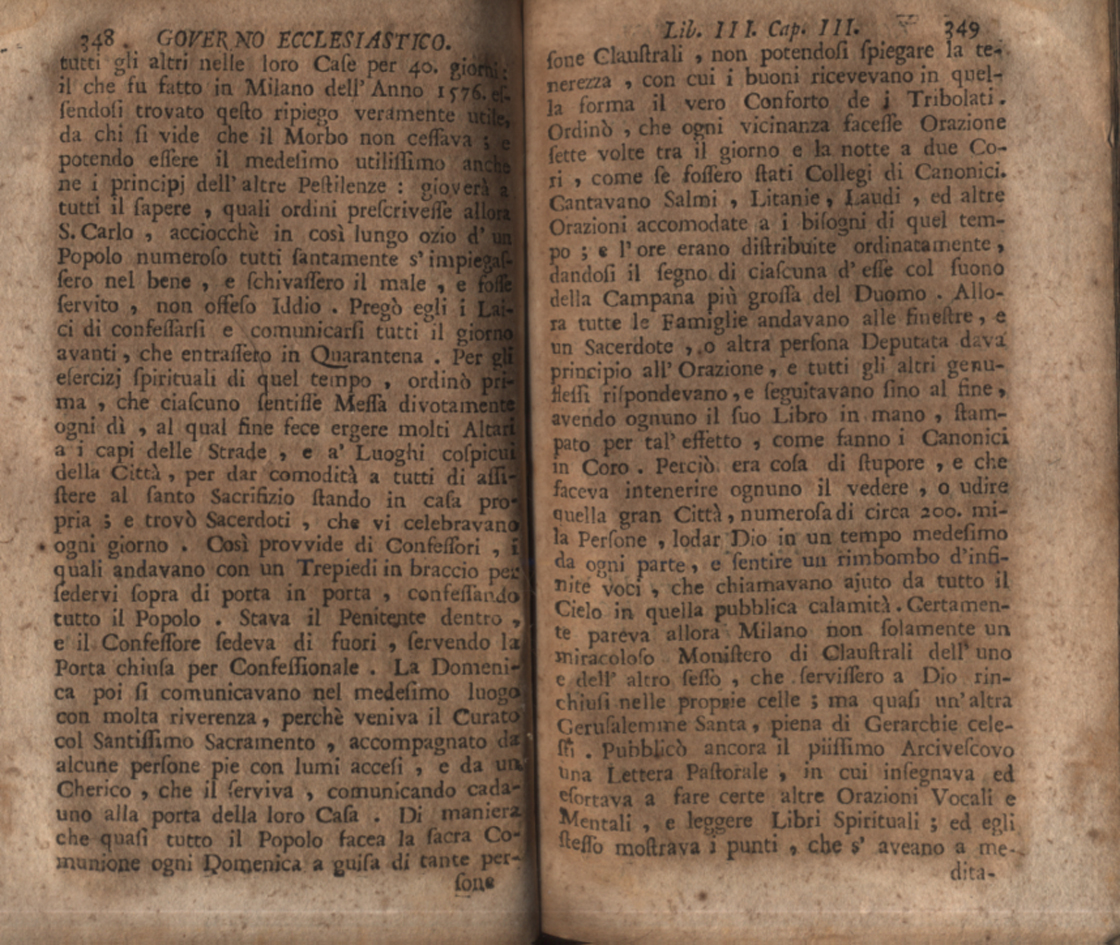 348 GOVERNO ECCLESIASTICO.
tutti gli altri nelle loro Caſe per 40. giorni;
il che fu fatto in Milano dell' Anno 1576. eſ-
ſendoſi trovato qeſto ripiego veramente utile,
da chi ſi vide che il Morbo non ceſſava; e
potendo eſſere il medeſimo utiliſſimo anche
ne i principj dell'altre Peſtilenze : gioverà a
tutti il ſapere , quali ordini preſcriveſſe allora
S. Carlo , acciocchè in così lungo ozio d' un
Popolo numeroſo tutti ſantamente s'impiegaſ-
ſero nel bene , e ſchivaſſero il male , e foſſe
ſervito , non offeſo Iddio . Pregò egli i Lai-
ci di confeſſarſi e comunicarſi tutti il giorno
avanti, che entraſſero in Quarantena . Per gli
eſercizj ſpirituali di quel tempo , ordinò pri-
ma , che ciaſcuno ſentiſſe Meſſa divotamente
ogni dì , al qual fine fece ergere molti Altari
a i capi delle Strade , e a' Luoghi coſpicui
della Città , per dar comodità a tutti di aſſi-
ſtere al ſanto Sacrifizio ſtando in caſa pro-
pria ; e trovò Sacerdoti , che vi celebravano
ogni giorno . Così provvide di Confeſſori , i
quali andavano con un Trepiedi in braccio per
ſedervi ſopra di porta in porta , confeſſando
tutto il Popolo . Stava il Penitente dentro ,
e il Confeſſore ſedeva di fuori , ſervendo la
Porta chiuſa per Confeſſionale . La Domeni-
ca poi ſi comunicavano nel medeſimo luogo
con molta riverenza, perchè veniva il Curato
col Santiſſimo Sacramento , accompagnato da
alcune perſone pie con lumi acceſi , e da un
Cherico , che il ſerviva , comunicando cada-
uno alla porta della loro Caſa . Di maniera
che quaſi tutto il Popolo facea la ſacra Co-
munione ogni Domenica a guiſa di tante per-
ſone
Lib. III. Cap. III. 349
ſone Clauſtrali , non potendoſi ſpiegare la te-
nerezza , con cui i buoni ricevevano in quel-
la forma il vero Conforto de i Tribolati.
Ordinò , che ogni vicinanza faceſſe Orazione
ſette volte tra il giorno e la notte a due Co-
ri , come ſe foſſero ſtati Collegi di Canonici.
Cantavano Salmi , Litanie, Laudi , ed altre
Orazioni accomodate a i biſogni di quel tem-
po ; e l' ore erano diſtribuite ordinatamente,
dandoſi il ſegno di ciaſcuna d' eſſe col ſuono
della Campana più groſſa del Duomo . Allo-
ra tutte le Famiglie andavano alle fineſtre, e
un Sacerdote , o altra perſona Deputata dava
principio all' Orazione, e tutti gli altri genu-
fleſſi riſpondevano, e ſeguitavano ſino al fine,
avendo ognuno il ſuo Libro in mano , ſtam-
pato per tal' effetto , come fanno i Canonici
in Coro . Perciò era coſa di ſtupore , e che
faceva intenerire ognuno il vedere , o udire
quella gran Città, numeroſa di circa 200. mi-
la Perſone , lodar Dio in un tempo medeſimo
da ogni parte, e ſentire un rimbombo d'infi-
nite voci , che chiamavano ajuto da tutto il
Cielo in quella pubblica calamità . Certamen-
te pareva allora Milano non ſolamente un
miracoloſo Moniſtero di Clauſtrali dell' uno
e dell' altro ſeſſo , che ſerviſſero a Dio rin-
chiuſi nelle proprie celle ; ma quaſi un'altra
Geruſalemme Santa, piena di Gerarchie cele-
ſti . Pubblicò ancora il piiſſimo Arciveſcovo
una Lettera Paſtorale , in cui inſegnava ed
eſortava a fare certe altre Orazioni Vocali e
Mentali , e leggere Libri Spirituali ; ed egli
ſteſſo moſtrava i punti , che s' aveano a me-
dita-